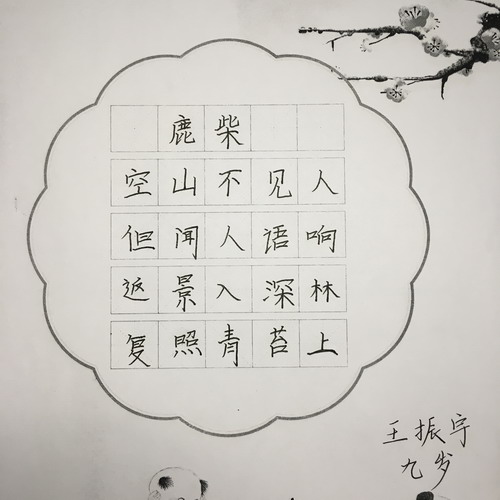 鹿柴
空山不见人
但闻人语响
返景入深林
复照青苔上
王振宇
九岁